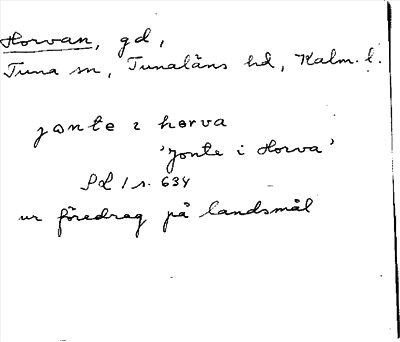 Horvan, gd,
Tuna sn, Tunaläns hd, Kalm. l.
jonte i horva
'Jonte i Horva'
SvL 1 s. 634
ur föredrag på landsmål